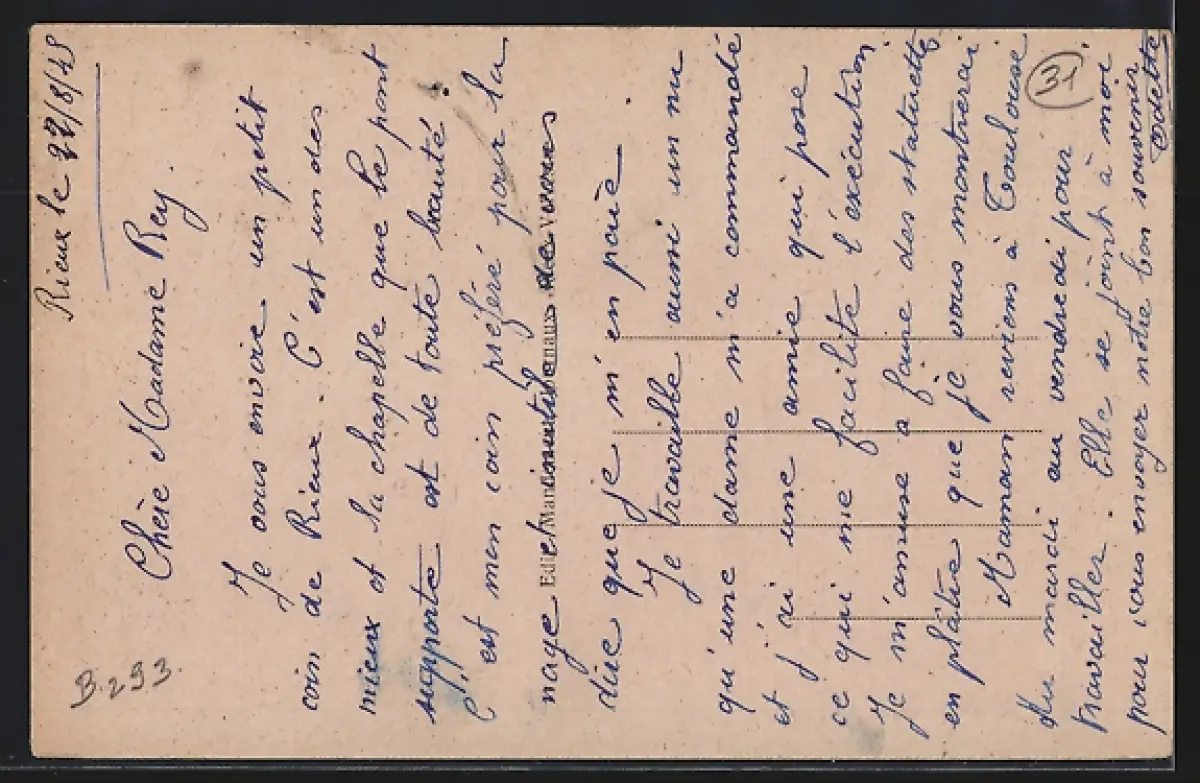 Rieux le 22/8/45
Chère Madame Rey.
Je vous envoie un petit
coin de Rieux. C'est un des
mieux et la chapelle que le pont
supporte est de toute beauté.
C'est mon coin préféré pour la
nage et
dire que je m'en paie.
Je travaille aussi un nu
qu'une dame m'a commandé
et j'ai une amie qui pose
ce qui me facilite l'exécution
Je m'amuse a faire des statuettes
en plâtre que je vous montrerai
Maman reviens à Toulouse
du mardi au vendredi pour
travailler. Elle se joint à moi
pour vous envoyer nôtre bon souvenir
Odette
31
B.293.